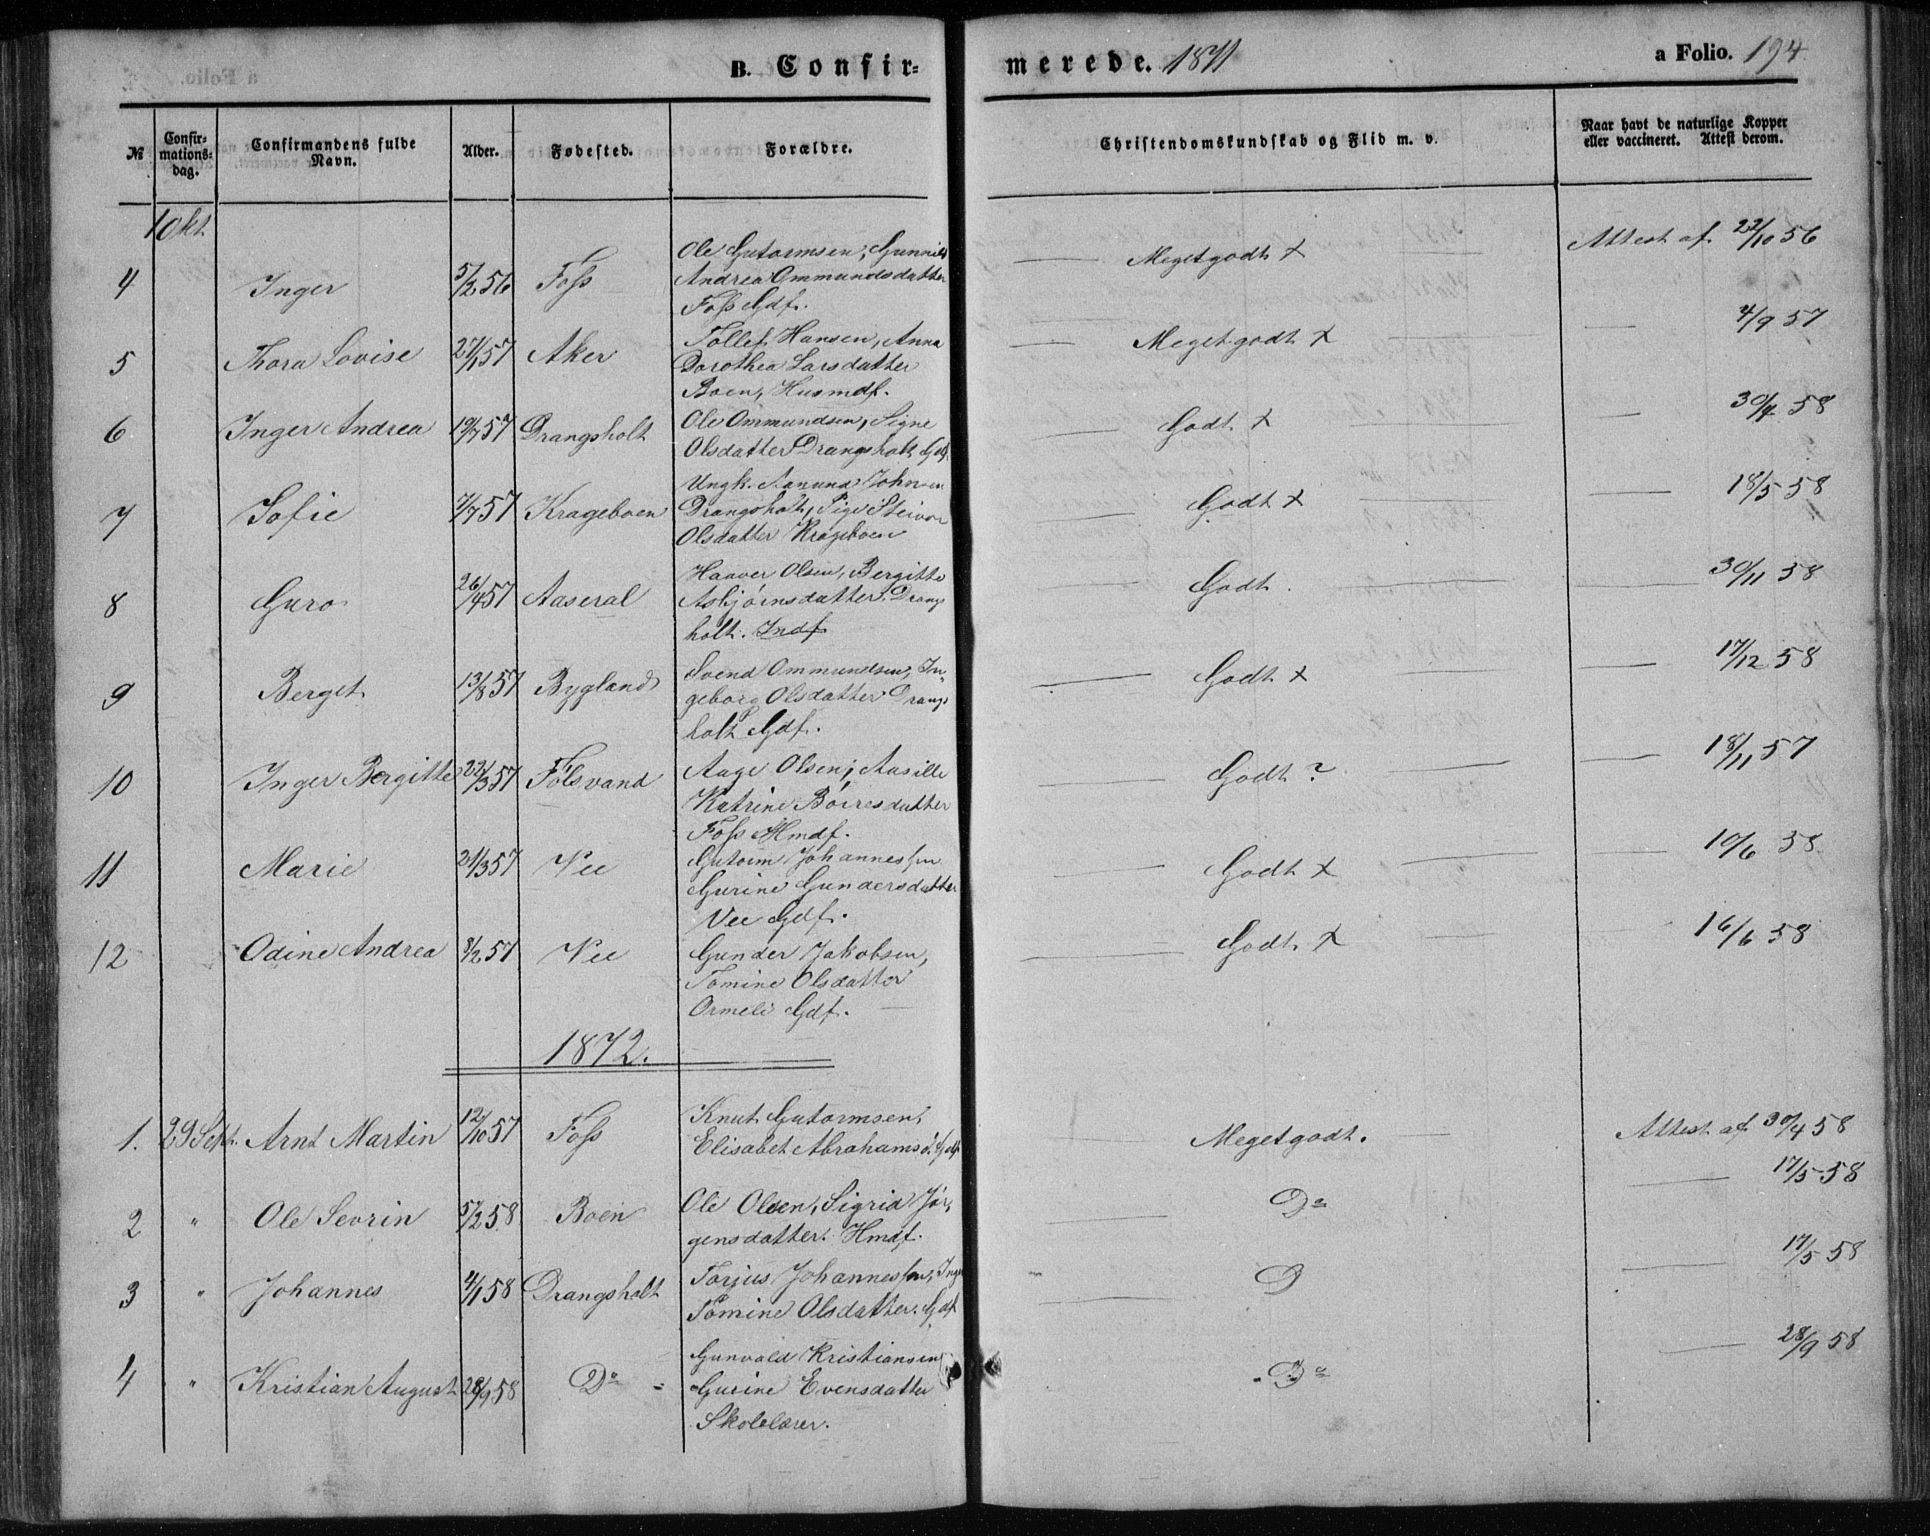 B. Confir-
merede. 1871
a Folio. 194
№
Confir-
mations-
dag.
Confirmandens fulde
Navn.
Alder.
Fødested.
Forældre.
Christendomskundskab og Flid m. v.
Naar havt de naturlige Kopper
eller vaccineret. Attest derom.
1 Okt.
4 Inger 5/2 56 Foss
Ole Gutormsen, Gunnild
Andrea Ommundsdatter
Foss Gdf.
Meget godt X
Attest af 22/10 56
5 Thora Lovise 27/1 57 Aker
Tollef Hansen, Anna
Dorothea Larsdatter
Boen, Husmdf.
Meget godt X
4/9 57
6 Inger Andrea 19/7 57 Drangsholt
Ole Ommundsen, Signe
Olsdatter Drangsholt Gdf.
Godt X
30/4 58
7 Sofie 7/7 57 Krageboen
Ungk. Aanund Johnsen
Drangsholt, Pige Steivor
Olsdatter Krageboen
Godt X
18/5 58
8 Guro 26/4 57 Aaseral
Haaver Olsen, Bergitte
Asbjørnsdatter Drangs
holt. Indf
Godt.
30/11 58
9 Berget 13/8 57 Bygland
Svend Ommundsen, In-
geborg Olsdatter Drangs
holt Gdf.
Godt X
17/12 58
10 Inger Bergitte 22/3 57 Følsvand
Aage Olsen, Aasille
Katrine Børresdatter
Foss Hmdf.
Godt ?
18/11 57
11 Marie 21/3 57 Vee
Gutorm Johannessen
Gurine Gundersdatter
Vee Gdf.
Godt X
10/6 58
12 Odine Andrea 8/2 57 Vee
Gunder Jakobsen,
Tomine Olsdatter
Ormeli Gdf.
Godt X
16/6 58
1872.
1. 29 Sept. Arnt Martin 12/10 57 Foss
Knut Gutormsen,
Elisabet Abrahamsd. Gdf.
Meget godt.
Attest af 30/4 58
2 " Ole Sevrin 5/2 58 Boen
Ole Olsen, Sigrid Jør-
gensdatter. Hmdf.
Do
17/5 58
3 " Johannes 4/1 58 Drangsholt
Torjus Johannessen, Inger
Tomine Olsdatter. Gdf
D
17/5 58
4 " Kristian August 28/9 58 Do
Gunvald Kristiansen
Gurine Evensdatter
Skolelærer.
Do
28/9 58